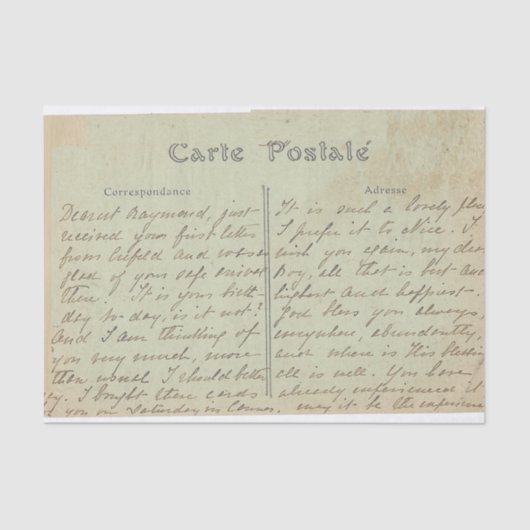 Carte Postale
Correspondance
Adresse
Dearest Raymond, just
received your first letter
from Crefeld and was so
glad of your safe arrival
there. It is your birth-
day to-day, is it not?
And I am thinking of
you very much, more
than usual I should better
say. I bought these cards
you on Saturday in Cannes.
It is such a lovely place
I prefer it to Nice. I
wish you again, my dear
Boy, all that is best and
highest and happiest.
God bless you always,
everywhere, abundantly,
and where is His blessing
all is well. You have
already experienced it
may it be the experience